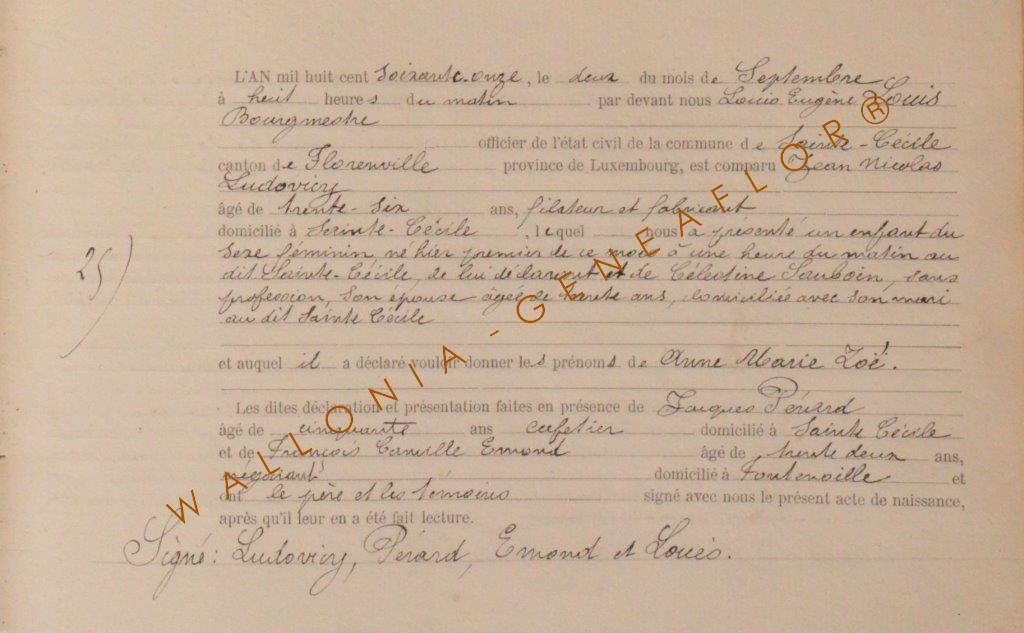 L'AN mil huit cent soixante-onze, le deux du mois de Septembre
à huit heures du matin par devant nous Louis Eugène Louis
Bourgmestre
officier de l'état civil de la commune de Sainte-Cécile
canton de Florenville province de Luxembourg, est comparu Jean Nicolas
Ludovicy
âgé de trente-six ans, filateur et fabricant
domicilié à Sainte-Cécile, lequel nous a présenté un enfant du
sexe féminin, né hier premier de ce mois à une heure du matin au
dit Sainte-Cécile, de lui déclarant et de Célestine Sauboin, sans
profession, son épouse âgée de trente ans, domiciliée avec son mari
au dit Sainte Cécile
25)
et auquel il a déclaré vouloir donner les prénoms de Anne Marie Zoé.
Les dites déclaration et présentation faites en présence de Jacques Pérard
âgé de cinquante ans cafetier domicilié à Sainte Cécile
et de François Camille Emond âgé de trente deux ans,
négociant domicilié à Fontenoille et
ont le père et les témoins signé avec nous le présent acte de naissance,
après qu'il leur en a été fait lecture.
Signé: Ludovicy, Pérard, Emond et Louis.
WALLONIA-GENEAFLOR®